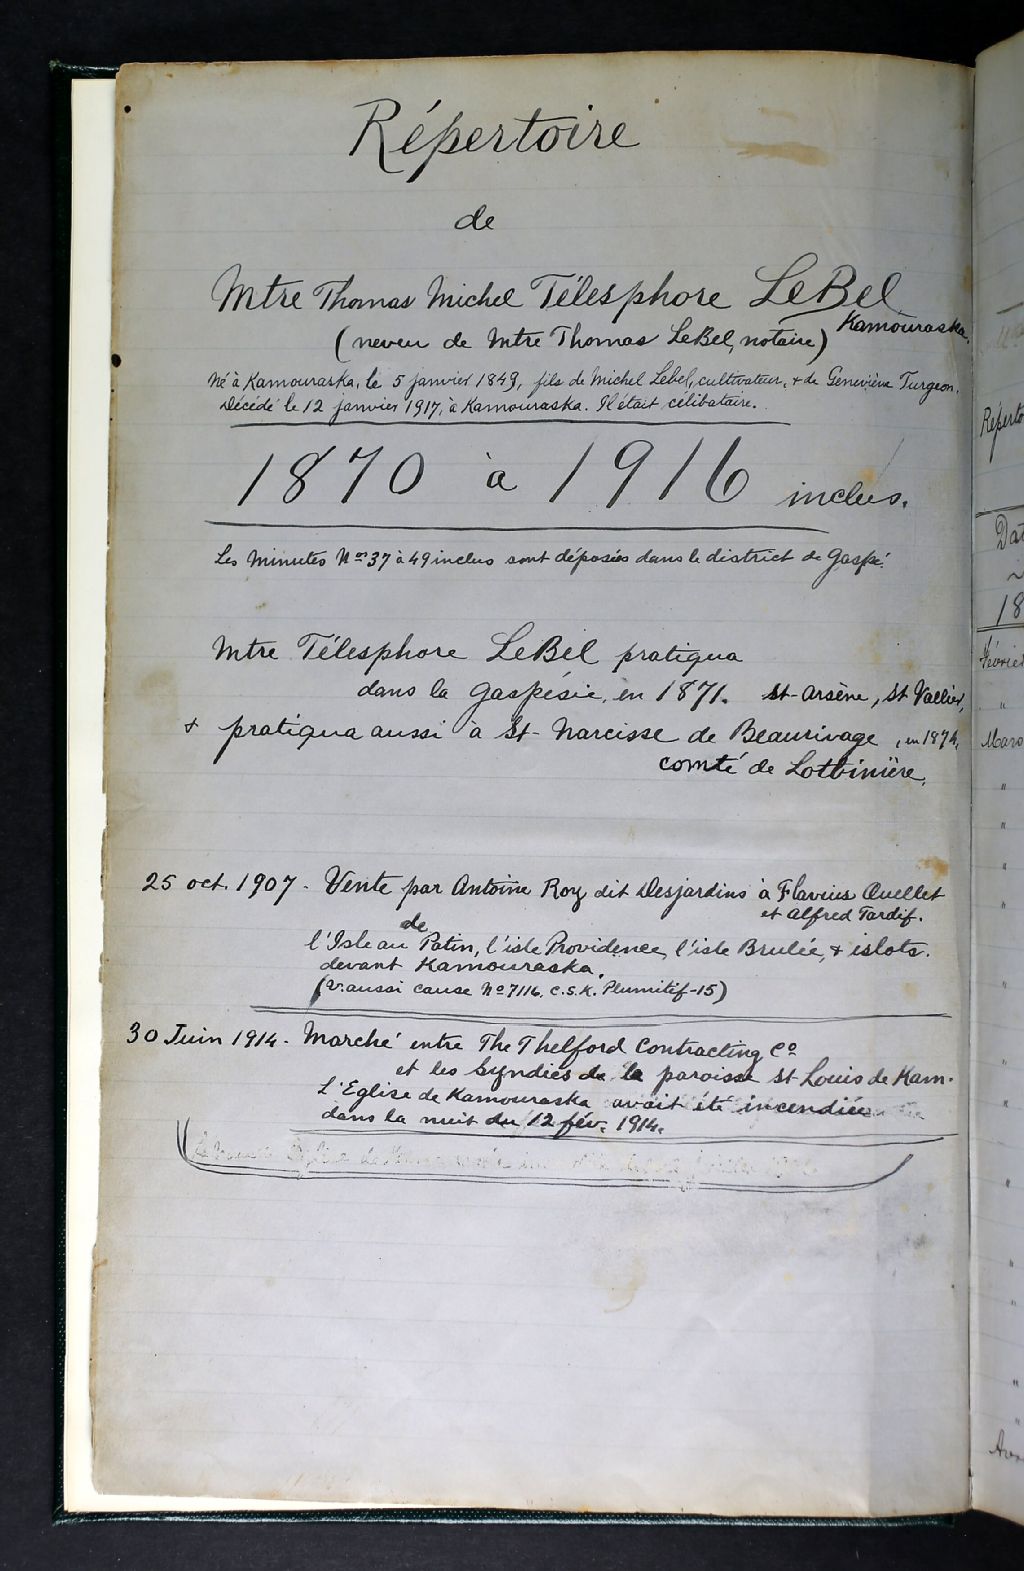 Répertoire
de
Mtre Thomas Michel Télesphore LeBel
Kamouraska.
(neveu de Mtre Thomas LeBel, notaire)
Né à Kamouraska, le 5 janvier 1849, fils de Michel Lebel, cultivateur, & de Geneviève Turgeon.
Décédé le 12 janvier 1917, à Kamouraska. Il était célibataire.
1870 à 1916 inclus.
Les Minutes Nos 37 à 49 inclus sont déposées dans le district de Gaspé.
Mtre Télesphore LeBel pratiqua
dans la Gaspésie, en 1871. St-Arsène, St Vallier,
& pratiqua aussi à St-Narcisse de Beaurivage, en 1874,
comté de Lotbinière.
25 oct. 1907. Vente par Antoine Roy dit Desjardins à Flavius Ouellet
et Alfred Tardif.
de
l'Isle au Patin, l'isle Providence, l'isle Brulée, & islots.
devant Kamouraska.
(V. aussi cause No 7116. C.S.K. Plumitif-15)
30 Juin 1914. Marché entre The Thelford Contracting Co
et les Syndics de la paroisse St Louis de Kam.
L'Eglise de Kamouraska avait été incendiée
dans la nuit du 12 fév. 1914.
Réperto
Dat
18
Février
"
Mars
"
"
"
"
"
"
"
"
"
"
"